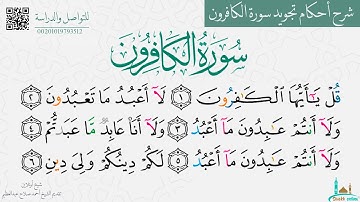 شرح أحكام تجويد سورة الكافرون
للتواصل والدراسة
00201019793512
سُورَةُ الكَافِرُونَ
قُلْ يَـٰٓأَيُّهَا ٱلْكَـٰفِرُونَ ١ لَآ أَعْبُدُ مَا تَعْبُدُونَ ٢
وَلَآ أَنتُمْ عَـٰبِدُونَ مَآ أَعْبُدُ ٣ وَلَآ أَنَا۠ عَابِدٌ مَّا عَبَدتُّمْ ٤
وَلَآ أَنتُمْ عَـٰبِدُونَ مَآ أَعْبُدُ ٥ لَكُمْ دِينُكُمْ وَلِىَ دِينِ ٦
شيخ أونلاين
الشيخ أحمد صلاح عبدالعظيم